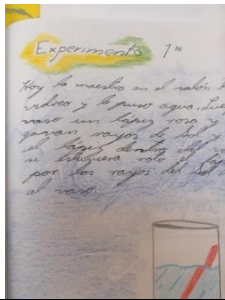 Experimento 1re
Hoy la maestra en el salón
vidrio y le puso agua. Lue
vaso un lápiz rosa y
rayos de sol y
el lápiz dentro del
si estuviera roto el láp
por los rayos del sol
al vaso